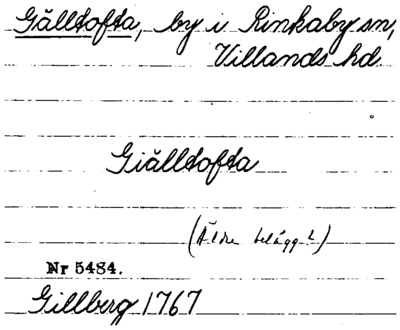 Gälltofta, by i Rinkaby sn,
Villands hd.
Giälltofta
(Äldre belägg?)
Nr 5484.
Gillberg 1767